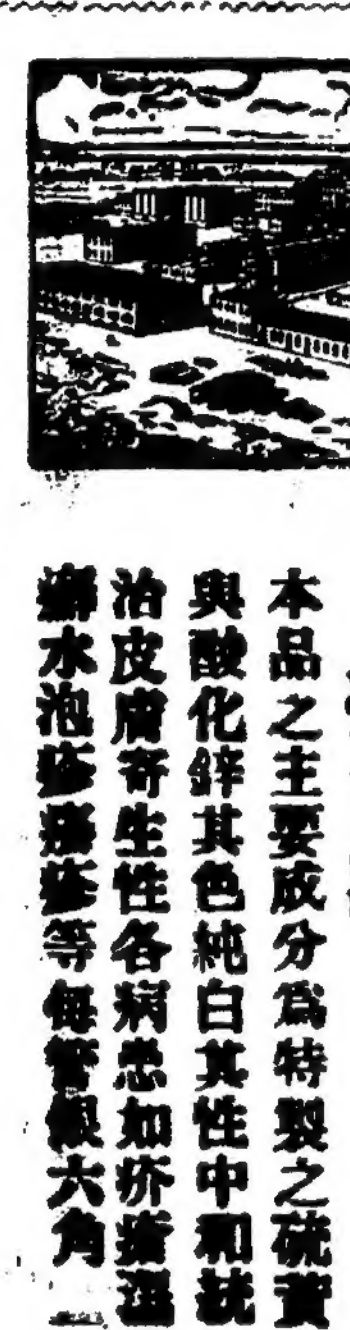 本品之主要成分為特製之硫黃
與酸化鋅其色純白其性中和統
治皮膚寄生性各病患如疥瘡溼
癬水泡疹等每管銀六角